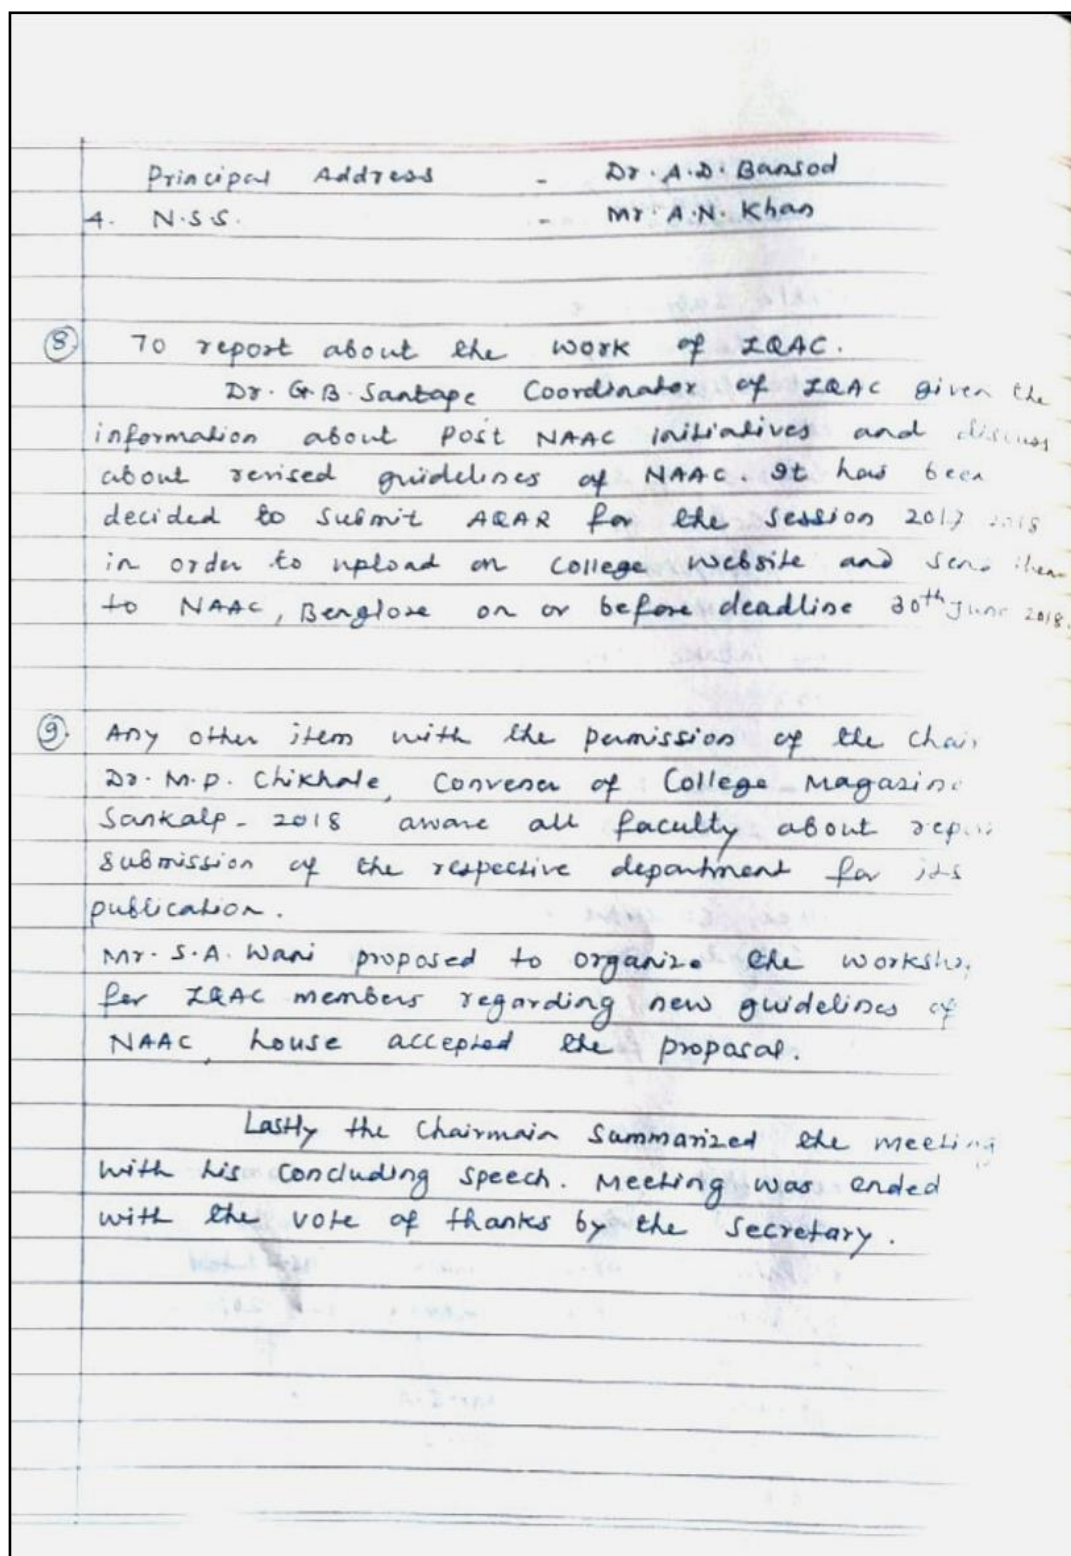 Principal Address - Dr. A.D. Bansod
4. N.S.S. - Mr. A.N. Khan
8 To report about the work of IQAC.
Dr. G.B. Santape Coordinator of IQAC given the
information about Post NAAC initiatives and discuss
about revised guidelines of NAAC. It has been
decided to submit AQAR for the session 2017 2018
in order to upload on College website and send them
to NAAC, Benglore on or before deadline 30th June 2018.
9. Any other item with the permission of the chair
Dr. M.P. Chikhale, Convener of College Magazine
Sankalp - 2018 aware all faculty about
submission of the respective department for its
publication.
Mr. S.A. Wani proposed to organize the workshop
for IQAC members regarding new guidelines of
NAAC, house accepted the proposal.
Lastly the Chairmain Summarized the meeting
with his concluding speech. Meeting was ended
with the vote of thanks by the Secretary.